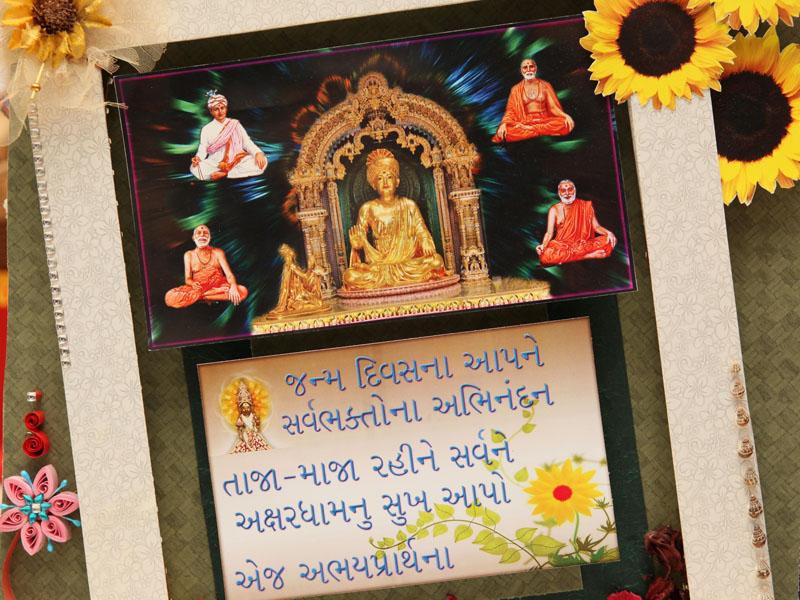 જન્મ દિવસના આપને
સર્વભક્તોના અભિનંદન
તાજા-માજા રહીને સર્વને
અક્ષરધામનુ સુખ આપો
એજ અભયપ્રાર્થના